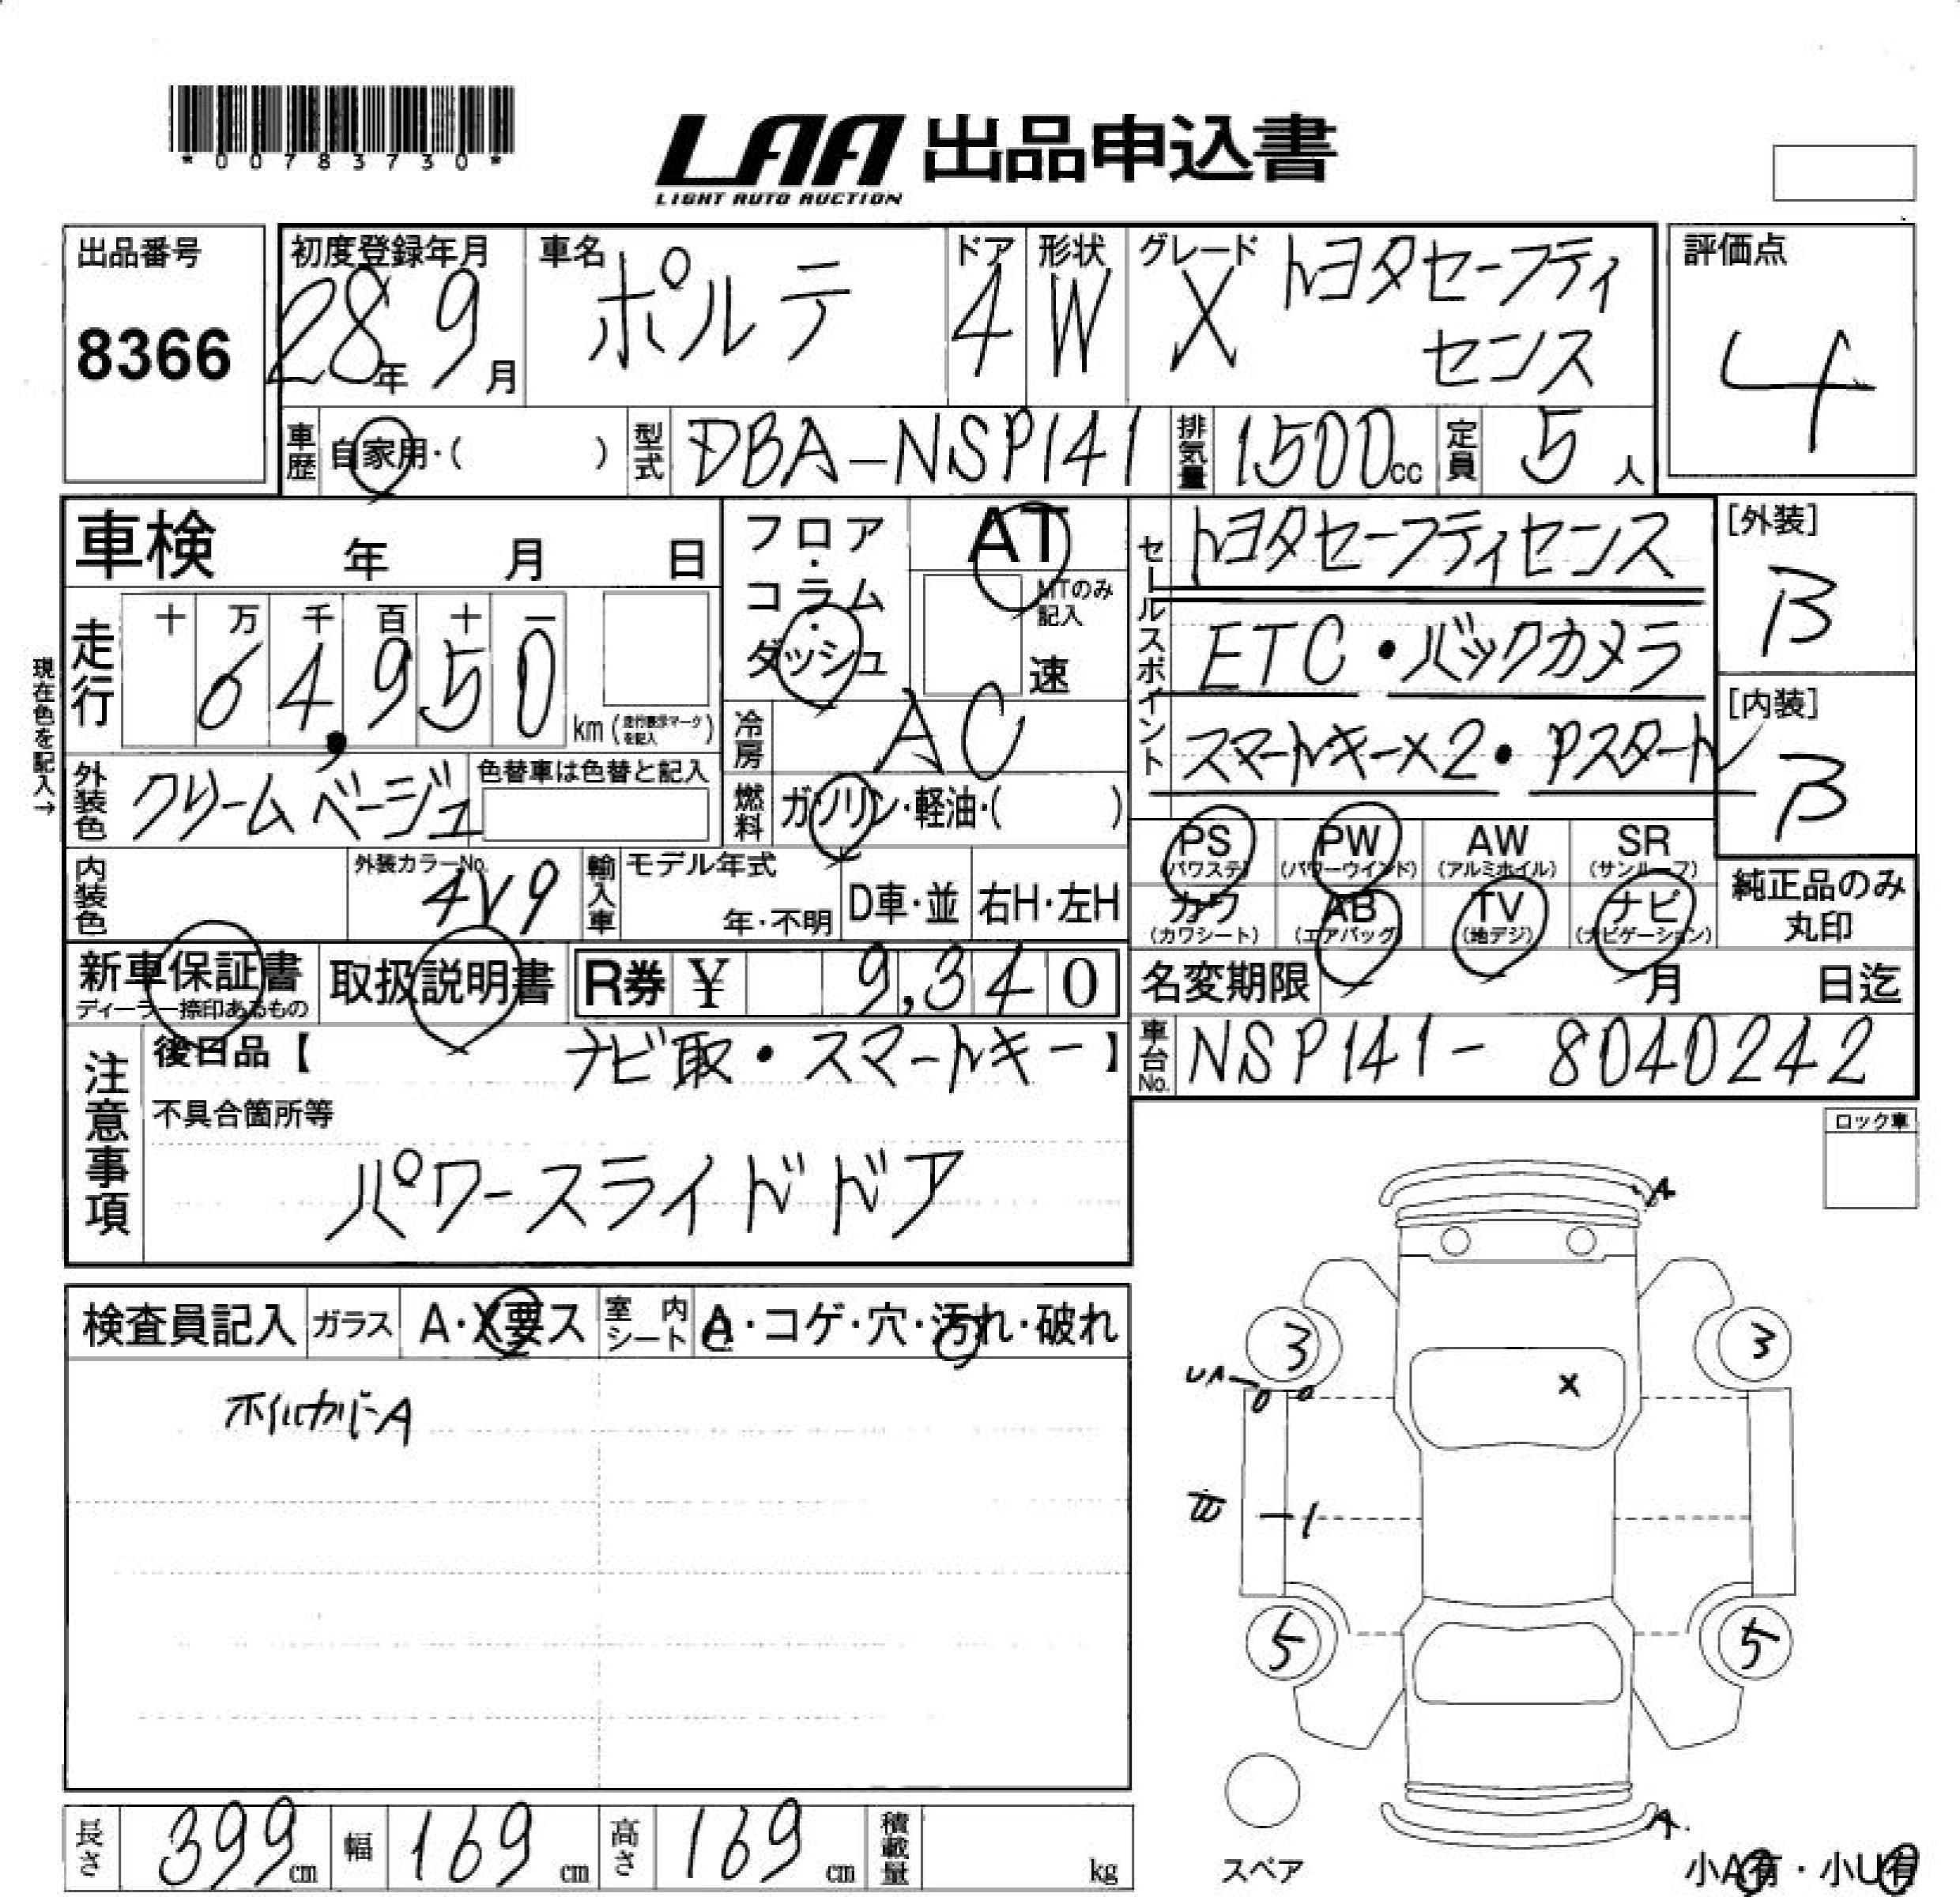 *00783730*
LAA 出品申込書
LIGHT AUTO AUCTION
出品番号
8366
初度登録年月
28年 9月
車名
ポルテ
ドア
4
形状
W
グレード
X トヨタセーフティ
センス
評価点
4
車歴 自家用・( )
型式 DBA-NSP141
排気量 1500cc
定員 5人
車検 年 月 日
フロア・コラム・ダッシュ
AT
MTのみ記入
速
セールスポイント
トヨタセーフティセンス
ETC・バックカメラ
スマートキー×2・Pスタート
[外装]
B
[内装]
B
現在色を記入→
走行
十 万 千 百 十 一
64,950
km (走行表示マークを記入)
冷房 AC
外装色 クリームベージュ
色替車は色替と記入
燃料 ガソリン・軽油・( )
PS (パワステ)
PW (パワーウインド)
AW (アルミホイル)
SR (サンルーフ)
カワ (カワシート)
AB (エアバッグ)
TV (地デジ)
ナビ (ナビゲーション)
純正品のみ
丸印
内装色
外装カラーNo.
4V9
輸入車
モデル年式
年・不明
D車・並
右H・左H
新車保証書
ディーラー捺印あるもの
取扱説明書
R券 ¥ 9,340
名変期限 月 日迄
車台No. NSP141- 8040242
注意事項
後日品【 ナビ取・スマートキー 】
不具合箇所等
パワースライドドア
ロック車
検査員記入
ガラス A・X要ス
室内シート A・コゲ・穴・汚れ・破れ
ホイルカバーA
A
3
3
UA
X
1
5
5
A
スペア
小A有・小U有
長さ 399cm
幅 169cm
高さ 169cm
積載量 kg